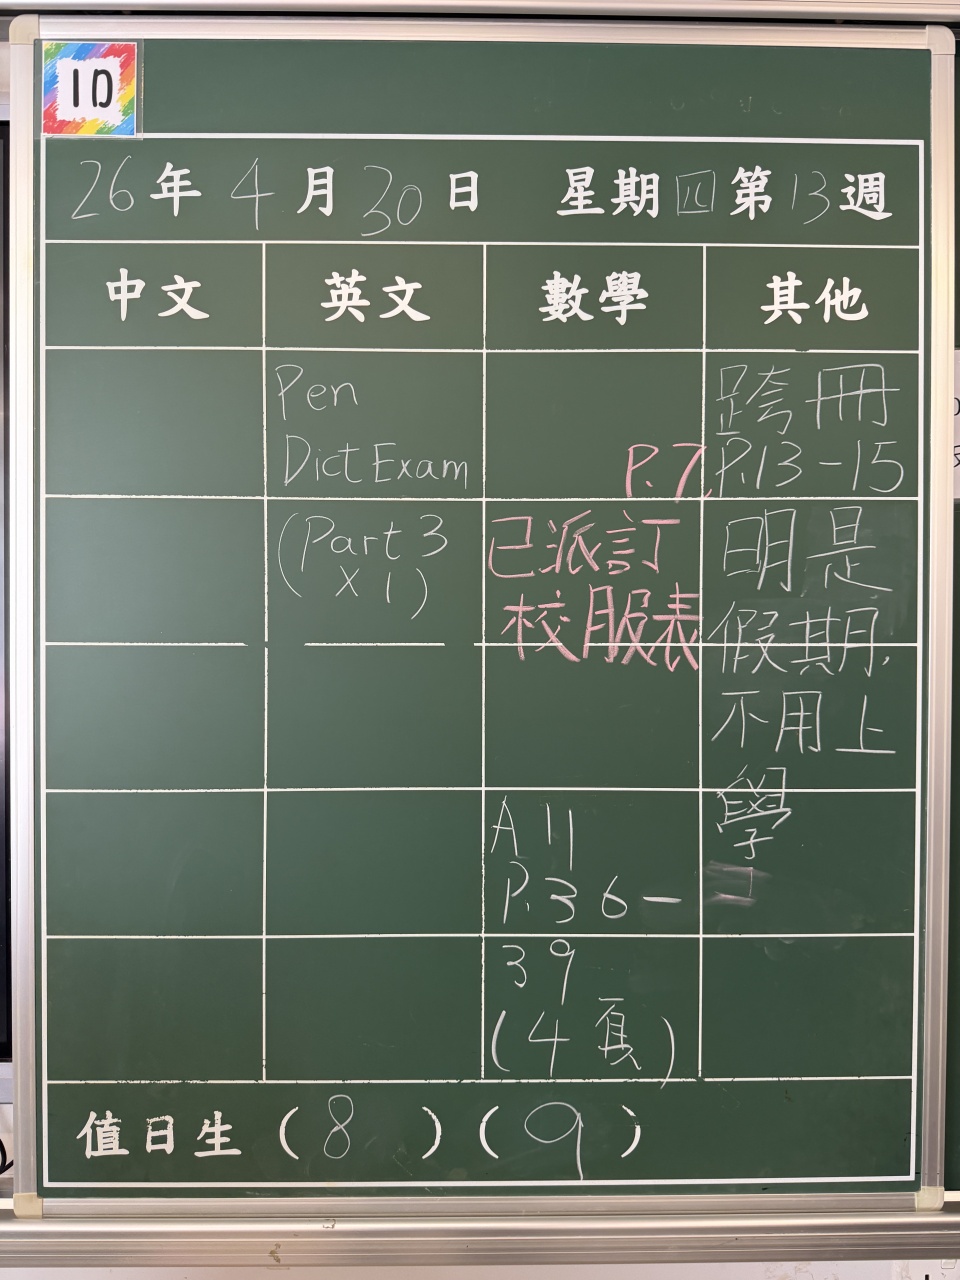 1D
26年4月30日 星期四第13週
中文 英文 數學 其他
Pen
Dict Exam
(Part 3
X 1)
P.7.
已派訂
校服表
A 11
P.36-
39
(4頁)
跨冊
P.13-15
明是
假期,
不用上
學
值日生(8)(9)